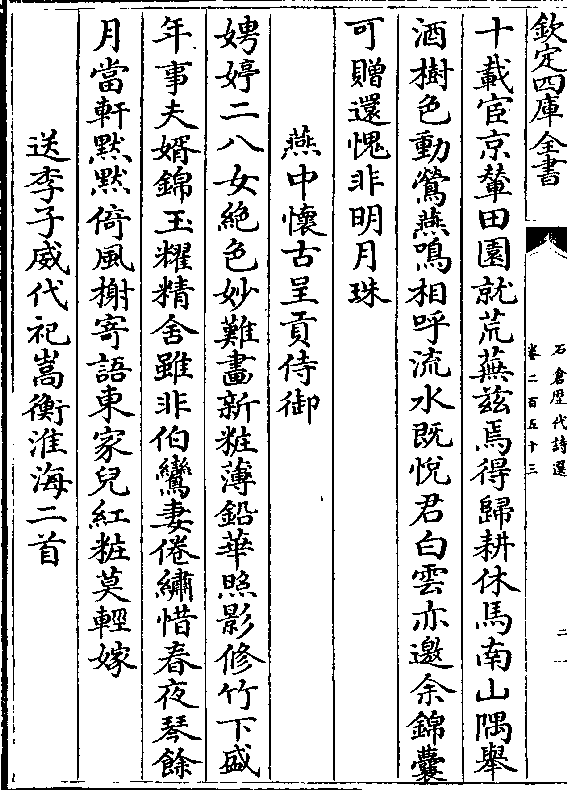 欽定四庫全書
石倉歷代詩選
卷二百五十三
二
十載宦京輦田園就荒蕪兹焉得歸耕休馬南山隅舉
酒樹色動鶯燕鳴相呼流水既悅君白雲亦邀余錦囊
可贈還愧非明月珠
燕中懷古呈貢侍御
娉婷二八女絶色妙難畫新粧薄鉛華照影修竹下盛
年事夫婿錦玉耀精舍雖非伯鸞妻倦繡惜春夜琴餘
月當軒默默倚風榭寄語東家兒紅粧莫輕嫁
送李子威代祀嵩衡淮海二首